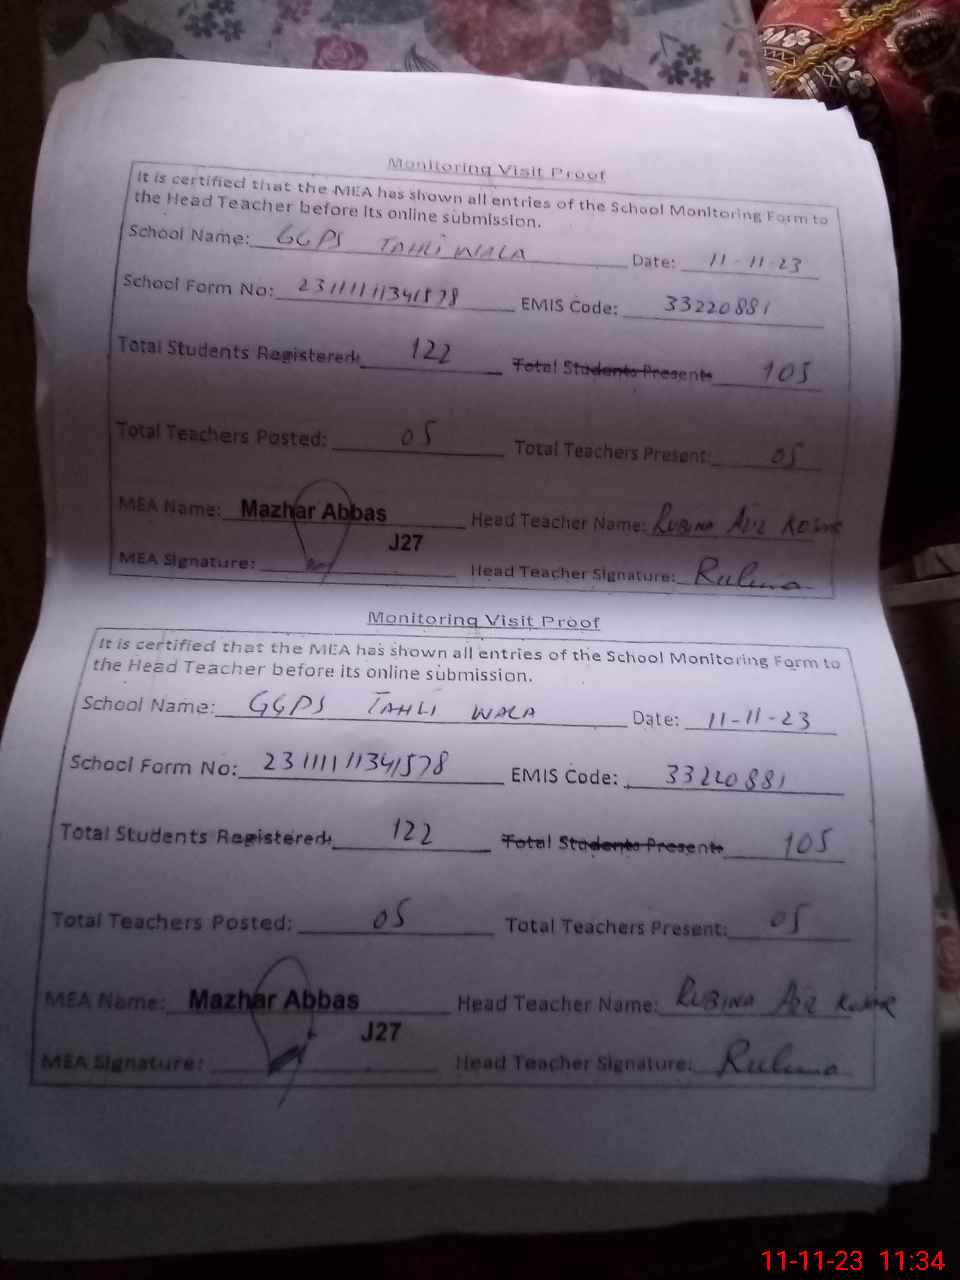 Monitoring Visit Proof
It is certified that the MEA has shown all entries of the School Monitoring Form to
the Head Teacher before its online submission.
School Name: GGPS TAHLI WALA Date: 11-11-23
School Form No: 23111111341578 EMIS Code: 33220881
Total Students Registered: 122 Total Students Present: 105
Total Teachers Posted: 05 Total Teachers Present: 05
MEA Name: Mazhar Abbas Head Teacher Name: RUBINA AZIZ
J27
MEA Signature: Head Teacher Signature: Rubina
Monitoring Visit Proof
It is certified that the MEA has shown all entries of the School Monitoring Form to
the Head Teacher before its online submission.
School Name: GGPS TAHLI WALA Date: 11-11-23
School Form No: 23111111341578 EMIS Code: 33220881
Total Students Registered: 122 Total Students Present: 105
Total Teachers Posted: 05 Total Teachers Present: 05
MEA Name: Mazhar Abbas Head Teacher Name: RUBINA AZIZ
J27
MEA Signature: Head Teacher Signature: Rubina
11-11-23 11:34